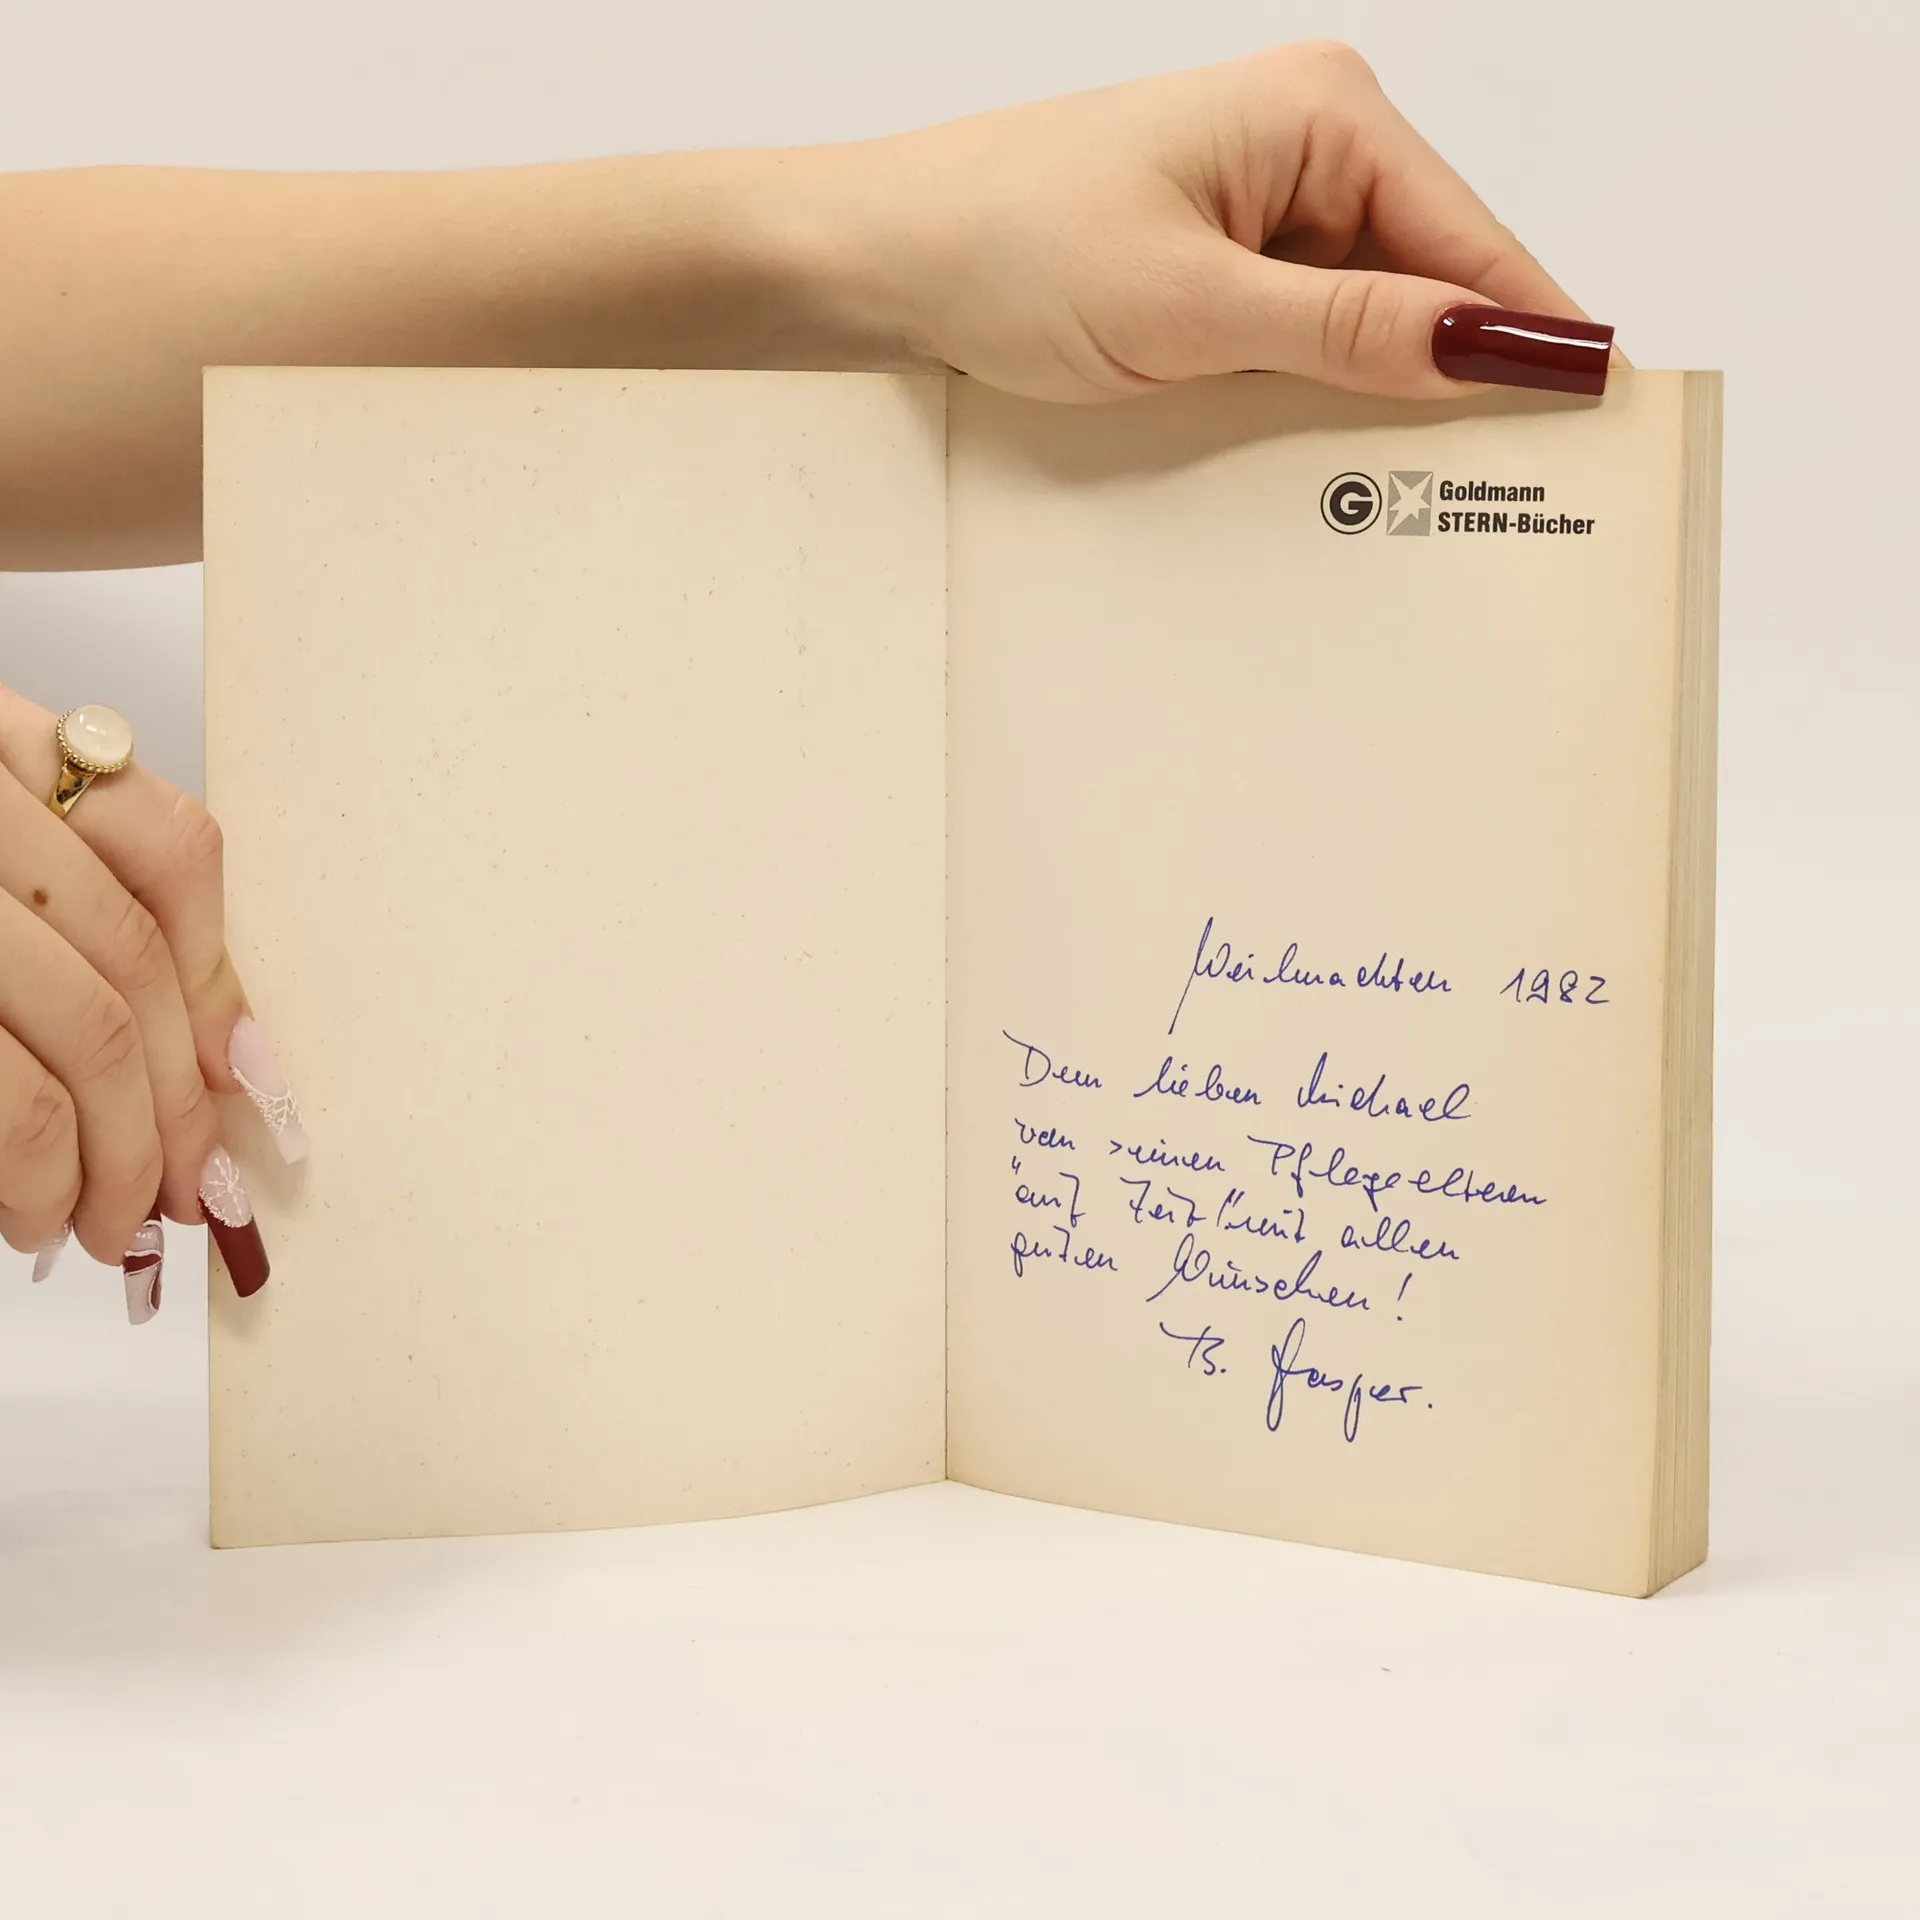 G
Goldmann
STERN-Bücher
Weihnachten 1982
Dem lieben Michael
von seinen Pflegeeltern
"auf Zeit" mit allen
guten Wünschen!
B. Jasper.